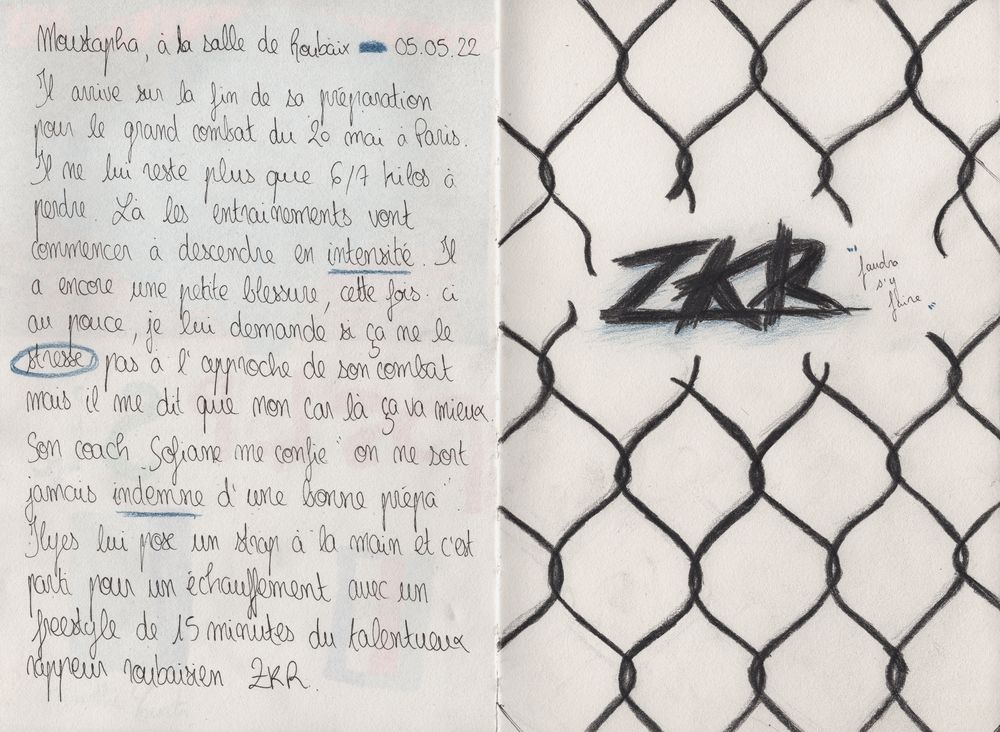 Moustapha, à la salle de Roubaix 05.05.22
Il arrive sur la fin de sa préparation
pour le grand combat du 20 mai à Paris.
Il ne lui reste plus que 6/7 kilos à
perdre. Là les entrainements vont
commencer à descendre en intensité. Il
a encore une petite blessure, cette fois-ci
au pouce, je lui demande si ça ne le
stresse pas à l'approche de son combat
mais il me dit que non car là ça va mieux.
Son coach Sofiane me confie "on ne sort
jamais indemne d'une bonne prépa".
Ilyes lui pose un strap à la main et c'est
parti pour un échauffement avec un
freestyle de 15 minutes du talentueux
rappeur roubaisien ZKR.
ZKR
"faudra
s'y
faire"